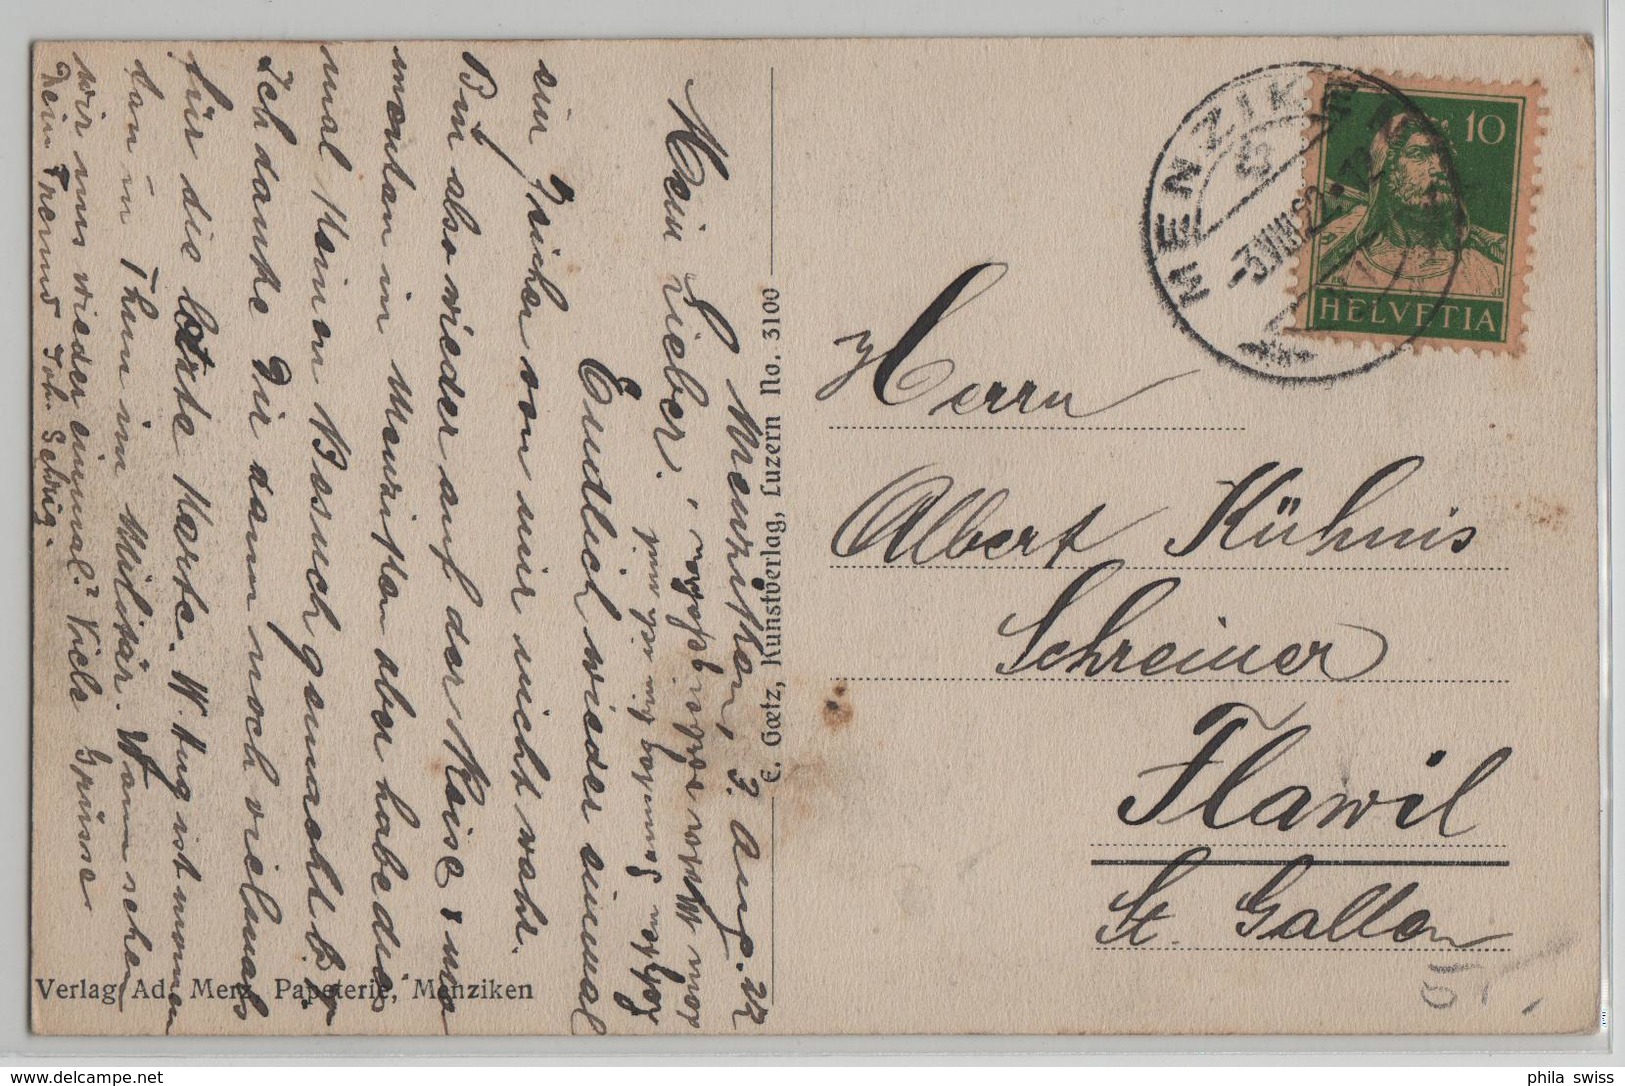 Menziken, 3. Aug. 22
Mein Lieber!
Endlich wieder einmal
ein Zeichen von mir nicht wahr.
Bin also wieder auf der Reise & mo
mentan in Menziken aber habe dies
mal keinen Besuch gemacht b.
Ich danke Dir dann noch vielmals
für die letzte Karte. W. Hug ist momen
tan in Thun im Militär. Wann sehen
wir uns wieder einmal? Viele Grüsse
Dein Freund Joh.
E. Gœtz, Kunstverlag, Luzern No. 3100
Verlag Ad. Merz, Papeterie, Menziken
MENZIKEN
-3.VIII.22-12
10
HELVETIA
Herrn
Albert Kühnis
Schreiner
Flawil
St. Gallen
phila swiss